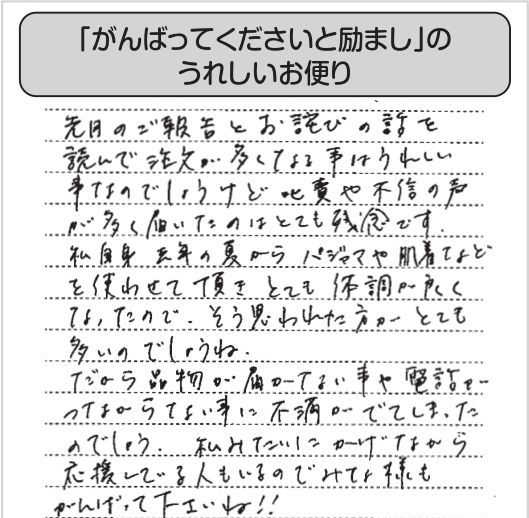 「がんばってくださいと励まし」の
うれしいお便り
先月のご報告とお詫びの話を
読んで注文が多くてなる事はうれしい
事なのでしょうけど叱責や不信の声
が多く届いたのはとても残念です.
私自身去年の夏からパジャマや肌着など
を使わせて頂きとても体調が良く
なったので、そう思われた方がとても
多いのでしょうね.
だから品物が届かない事や電話が
つながらない事に不満がでてしまった
のでしょう. 私みたいにかげながら
応援している人もいるのでみな様も
がんばって下さいね!!